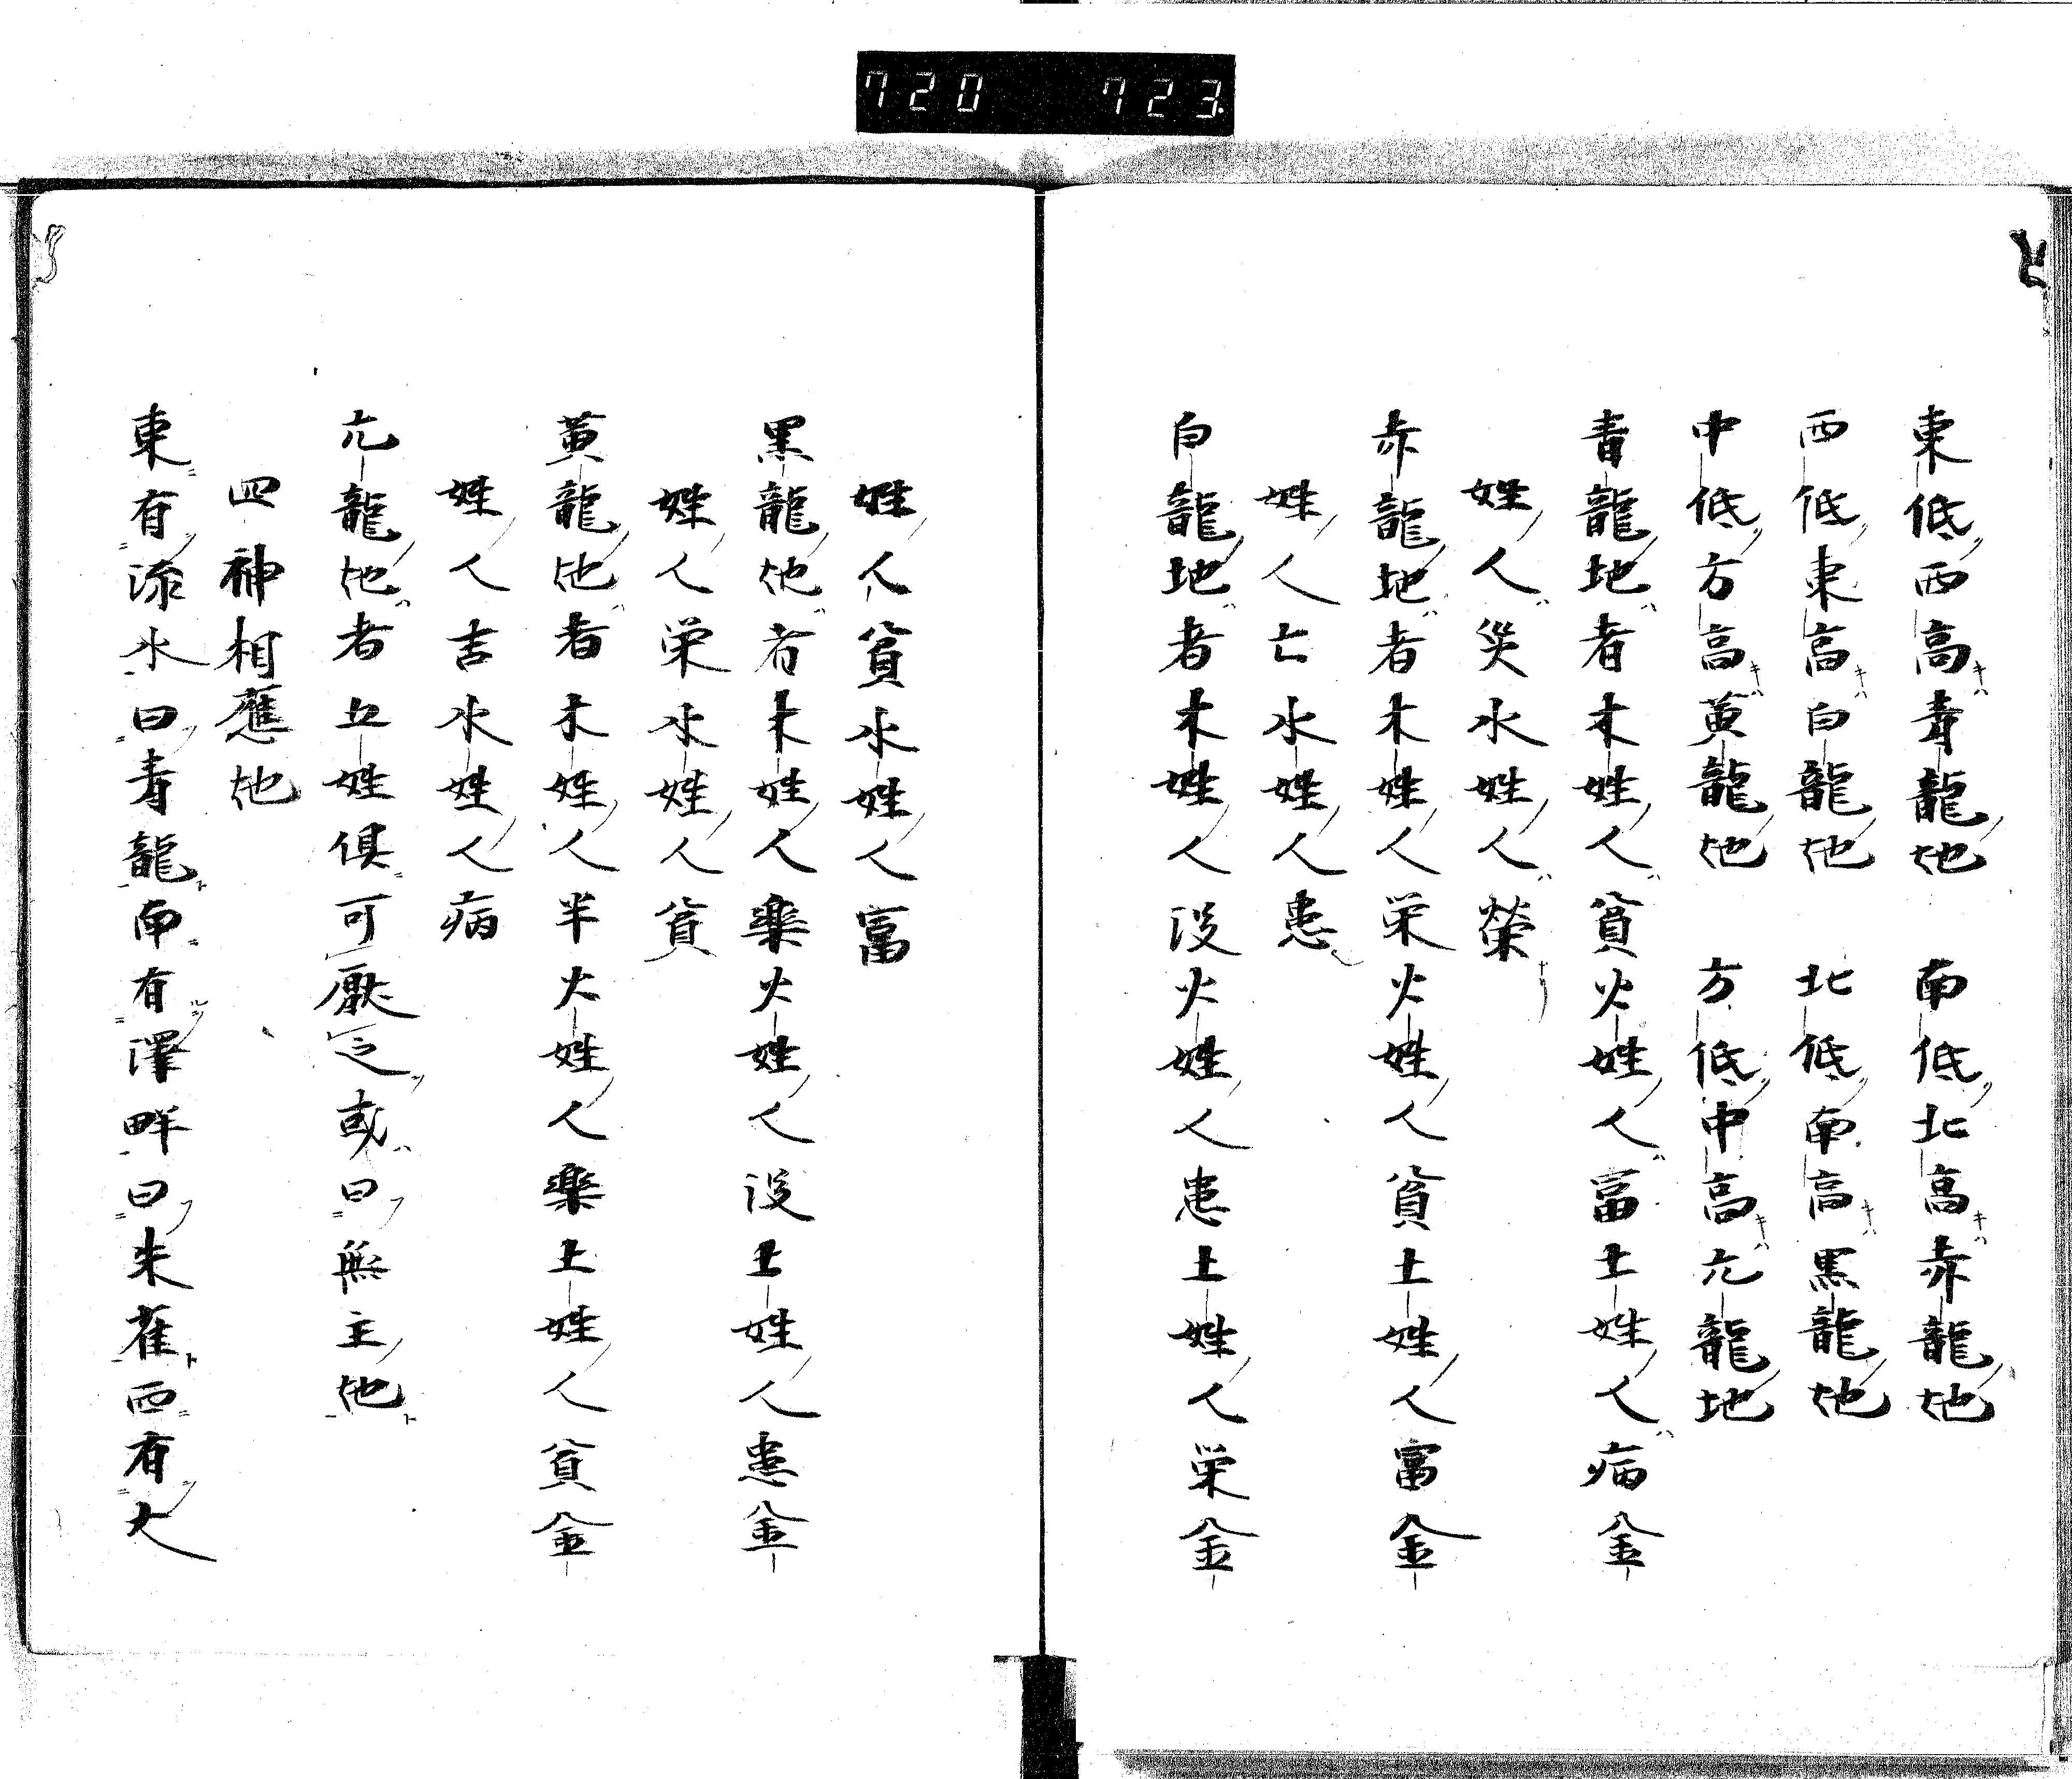 720 723
東低西高青龍地 南低北高赤龍地
西低東高白龍地 北低南高黒龍地
中低方高黄龍地 方低中高亢龍地
青龍地者木姓人貧火姓人富土姓人病金
姓人災水姓人榮
赤龍地者木姓人栄火姓人貧土姓人富金
姓人亡水姓人患
白龍地者木姓人没火姓人患土姓人栄金
姓人貧水姓人富
黒龍地者木姓人樂火姓人没土姓人患金
姓人栄水姓人貧
黄龍地者木姓人半火姓人樂土姓人貧金
姓人吉水姓人病
亢龍地者五姓倶可厭之或曰無主地
四神相應地
東有流水曰青龍南有澤畔曰朱雀西有大